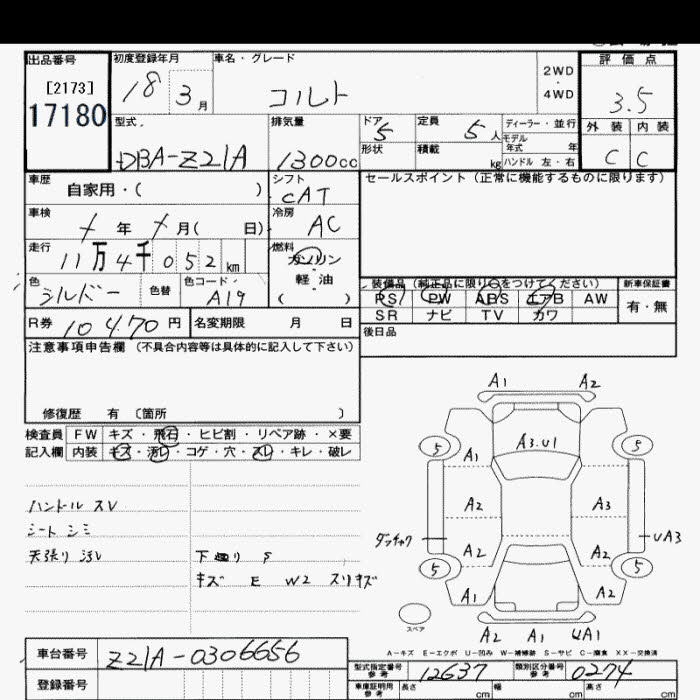 出品番号 初度登録年月 車名・グレード 評価点
[2173] 18年 3月 コルト 2WD・4WD 3.5
17180 外装 内装
型式 排気量 ドア 5 定員 5人 ディーラー・並行 C C
DBA-Z21A 1300cc 形状 積載 kg モデル年式 年
ハンドル 左・右
車歴 自家用・( ) シフト CAT セールスポイント(正常に機能するものに限ります)
車検 年 月( 日) 冷房 AC
走行 11万4千052km 燃料 ガソリン
色 シルバー 色替 色コード A19 軽油 ( )
装備品(純正品に限り○をつけてください) 新車保証書
PS PW ABS エアB AW 有・無
SR ナビ TV カワ
R券 10470円 名変期限 月 日 後日品
注意事項申告欄 (不具合内容等は具体的に記入して下さい)
修復歴 有 〔箇所 〕
検査員 FW キズ・飛石・ヒビ割・リペア跡・×要
記入欄 内装 キズ・汚レ・コゲ・穴・スレ・キレ・破レ
ハンドル スレ
シート シミ
天張り 汚レ 下廻り S
キズ E W2 スリキズ
A1 A2
5 A3.U1 5
A1
A2 A3
ダッチャク A2 A2 UA3
5 5
A1 A2
スペア
A2 A1 UA1
A-キズ E-エクボ U-凹み W-補修跡 S-サビ C-腐食 XX-交換済
車台番号 Z21A-0306656 型式指定番号 参考 12637 類別区分番号 参考 0274
登録番号 車庫証明用 参考 長さ cm 幅 cm 高さ cm